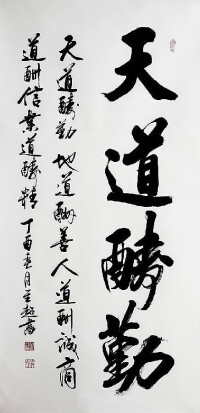 天道酬勤
天道酬勤地道酬善人道酬诚商
道酬信業道酬精丁酉春月王超書